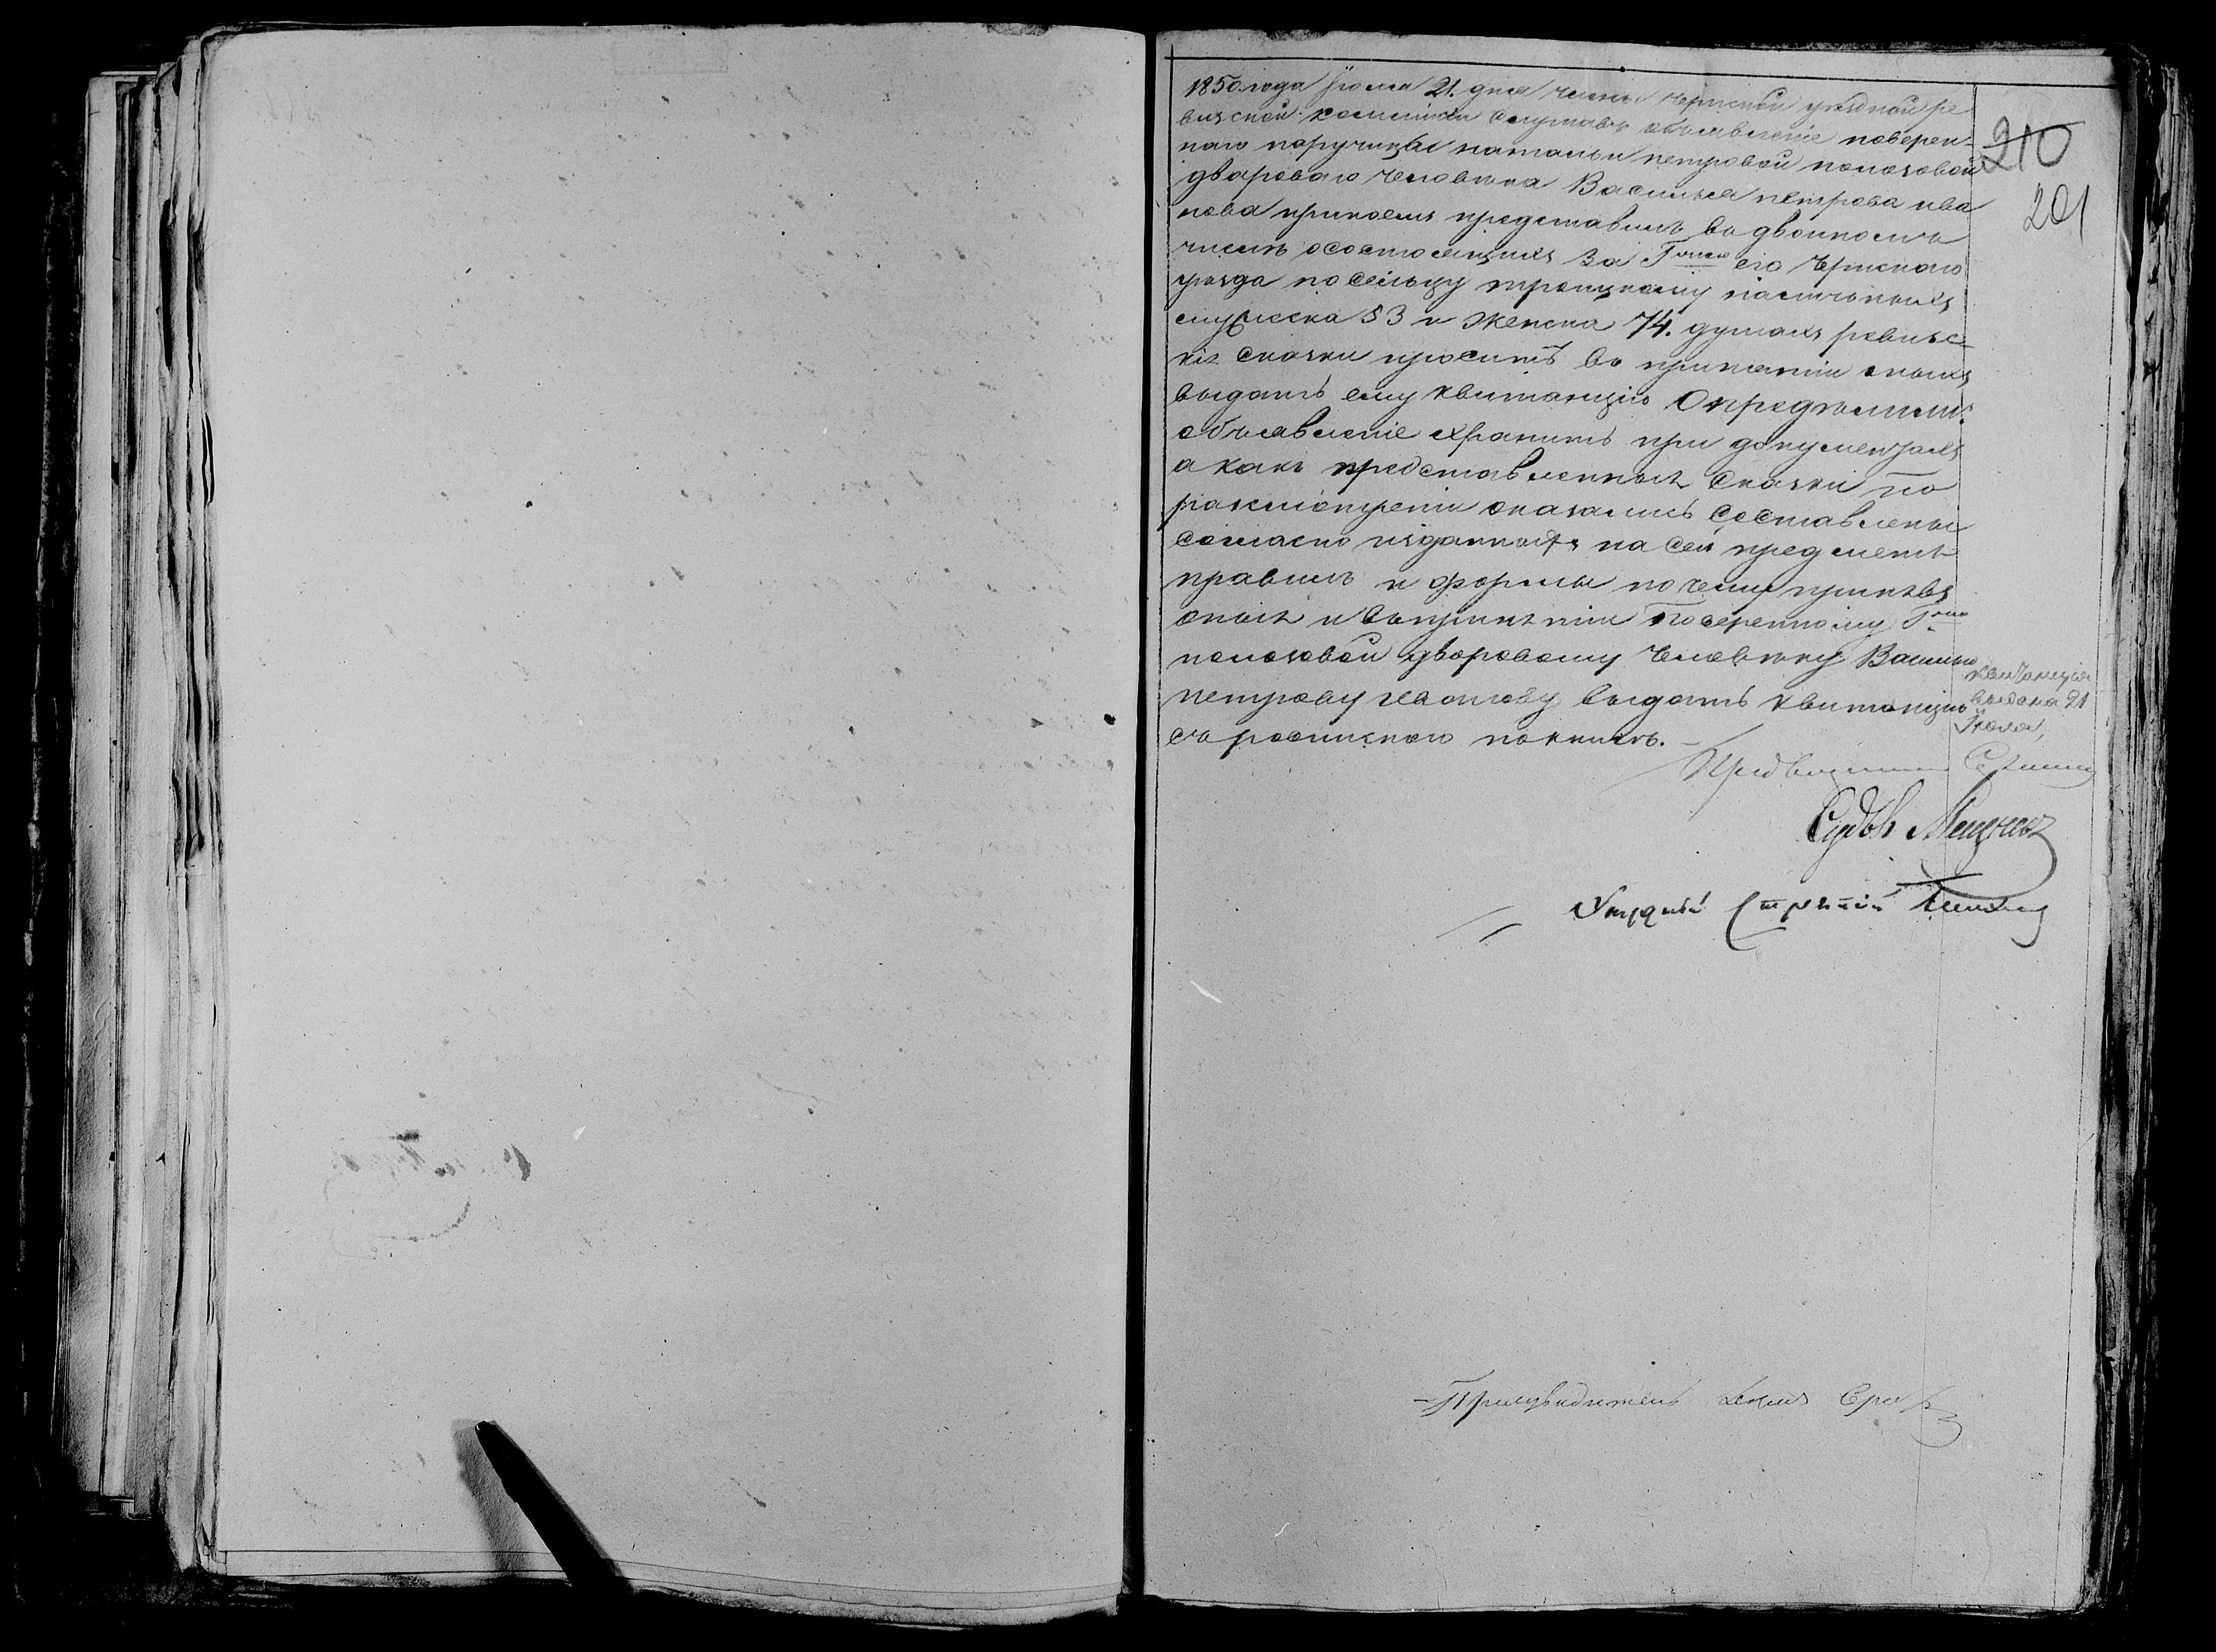 1850 года Іюля 21. дня члены чернской уѣздной ре
визской коммисіи слушавъ объявленіе поверен-
наго порутчицы натальи петровой полозовой
двороваго человѣка Василья петрова ива
нова прикоемъ представилъ въ двойномъ
числѣ осостоящихъ за Г его Чернскаго
уѣзда по сельцу троицкому наличныхъ
мужеска 83 и женска 74. душахъ ревизс
кіе сказки проситъ въ принятіи оныхъ
выдать ему квитанцію Определили:
объявленіе хранить при документахъ
а какъ представленные сказки по
разсмотреніи оказались составлены
согласно изданныхъ на сей предметъ
правилъ и формы по чему принявъ
оные и въ принятіи Поверенному Г
полозовой дворовому человѣку Василью
петрову иванову выдать квитанцію
съ роспискою по книгѣ.
210
201
квитанція
выдана 21
Іюля,
Судья
Уездный Стряпчій